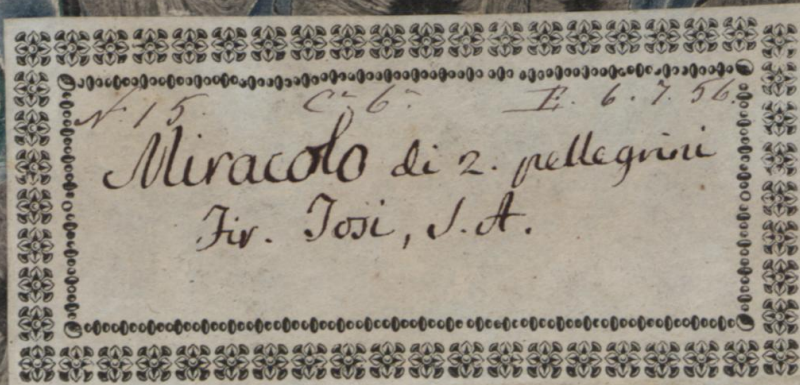 N. 15. C. 6. E. 6. 7. 56.
Miracolo di 2. pellegrini
Fir. Tosi, S. A.